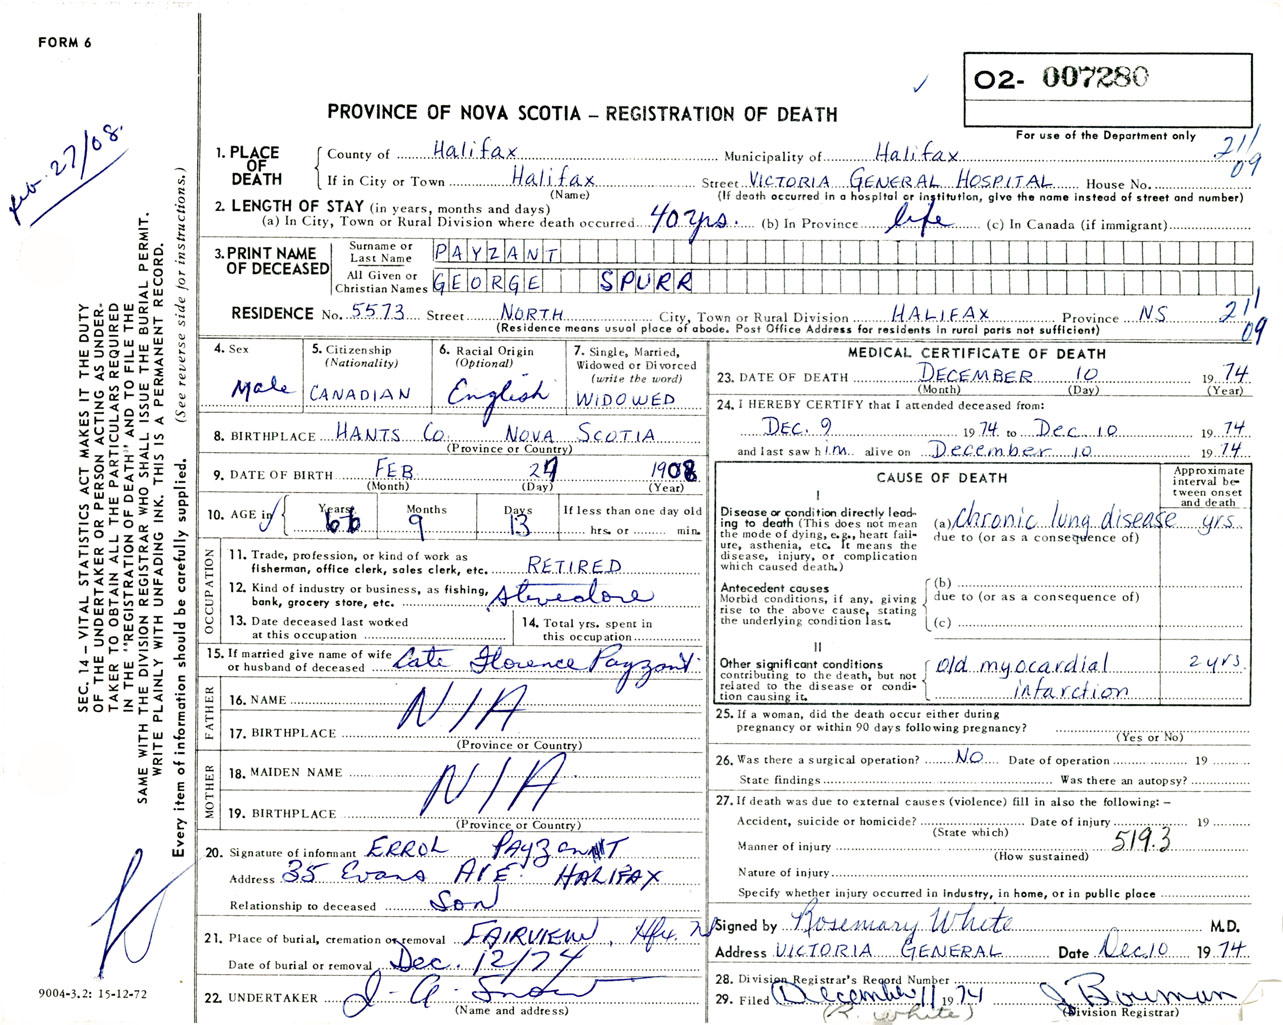 FORM 6
O2- 007280
PROVINCE OF NOVA SCOTIA – REGISTRATION OF DEATH
For use of the Department only
Feb. 27/08.
SEC. 14 – VITAL STATISTICS ACT MAKES IT THE DUTY
OF THE UNDERTAKER OR PERSON ACTING AS UNDER-
TAKER TO OBTAIN ALL THE PARTICULARS REQUIRED
IN THE "REGISTRATION OF DEATH" AND TO FILE THE
SAME WITH THE DIVISION REGISTRAR WHO SHALL ISSUE THE BURIAL PERMIT.
WRITE PLAINLY WITH UNFADING INK. THIS IS A PERMANENT RECORD.
Every item of information should be carefully supplied. (See reverse side for instructions.)
1. PLACE OF DEATH
County of Halifax Municipality of Halifax 21/09
If in City or Town Halifax Street VICTORIA GENERAL HOSPITAL House No.
(Name) (If death occurred in a hospital or institution, give the name instead of street and number)
2. LENGTH OF STAY (in years, months and days)
(a) In City, Town or Rural Division where death occurred 40 yrs. (b) In Province life (c) In Canada (if immigrant)
3. PRINT NAME OF DECEASED
Surname or Last Name PAYZANT
All Given or Christian Names GEORGE SPURR
RESIDENCE No. 5573 Street NORTH City, Town or Rural Division HALIFAX Province NS 21/09
(Residence means usual place of abode. Post Office Address for residents in rural parts not sufficient)
4. Sex
Male
5. Citizenship
(Nationality)
CANADIAN
6. Racial Origin
(Optional)
English
7. Single, Married,
Widowed or Divorced
(write the word)
WIDOWED
8. BIRTHPLACE HANTS CO NOVA SCOTIA
(Province or Country)
9. DATE OF BIRTH FEB 27 1908
(Month) (Day) (Year)
10. AGE in Years Months Days If less than one day old
66 9 13 hrs. or min.
OCCUPATION
11. Trade, profession, or kind of work as
fisherman, office clerk, sales clerk, etc. RETIRED
12. Kind of industry or business, as fishing,
bank, grocery store, etc. Stevedore
13. Date deceased last worked
at this occupation
14. Total yrs. spent in
this occupation
15. If married give name of wife
or husband of deceased Cate Florence Payzant
FATHER
16. NAME
N/A
17. BIRTHPLACE
(Province or Country)
MOTHER
18. MAIDEN NAME
N/A
19. BIRTHPLACE
(Province or Country)
20. Signature of informant ERROL PAYZANT
Address 35 Evans AVE. HALIFAX
Relationship to deceased Son
21. Place of burial, cremation or removal FAIRVIEW, Hfx. N
Date of burial or removal Dec. 12/74
22. UNDERTAKER J. A. Snow
(Name and address)
9004-3.2: 15-12-72
MEDICAL CERTIFICATE OF DEATH
23. DATE OF DEATH DECEMBER 10 1974
(Month) (Day) (Year)
24. I HEREBY CERTIFY that I attended deceased from:
DEC. 9 1974 to Dec 10 1974
and last saw him alive on December 10 1974
CAUSE OF DEATH
Approximate
interval be-
tween onset
and death
I
Disease or condition directly lead-
ing to death (This does not mean
the mode of dying, e.g., heart fail-
ure, asthenia, etc. It means the
disease, injury, or complication
which caused death.)
(a) Chronic lung disease yrs.
due to (or as a consequence of)
Antecedent causes
Morbid conditions, if any, giving
rise to the above cause, stating
the underlying condition last.
(b)
due to (or as a consequence of)
(c)
II
Other significant conditions
contributing to the death, but not
related to the disease or condi-
tion causing it.
Old myocardial 2 yrs.
infarction
25. If a woman, did the death occur either during
pregnancy or within 90 days following pregnancy?
(Yes or No)
26. Was there a surgical operation? NO Date of operation 19
State findings Was there an autopsy?
27. If death was due to external causes (violence) fill in also the following: –
Accident, suicide or homicide? Date of injury 19
(State which)
Manner of injury 519.3
(How sustained)
Nature of injury
Specify whether injury occurred in industry, in home, or in public place
Signed by Rosemary White M.D.
Address VICTORIA GENERAL Date Dec 10 1974
28. Division Registrar's Record Number
29. Filed December 11 1974 J Bowman
(R. White) (Division Registrar)